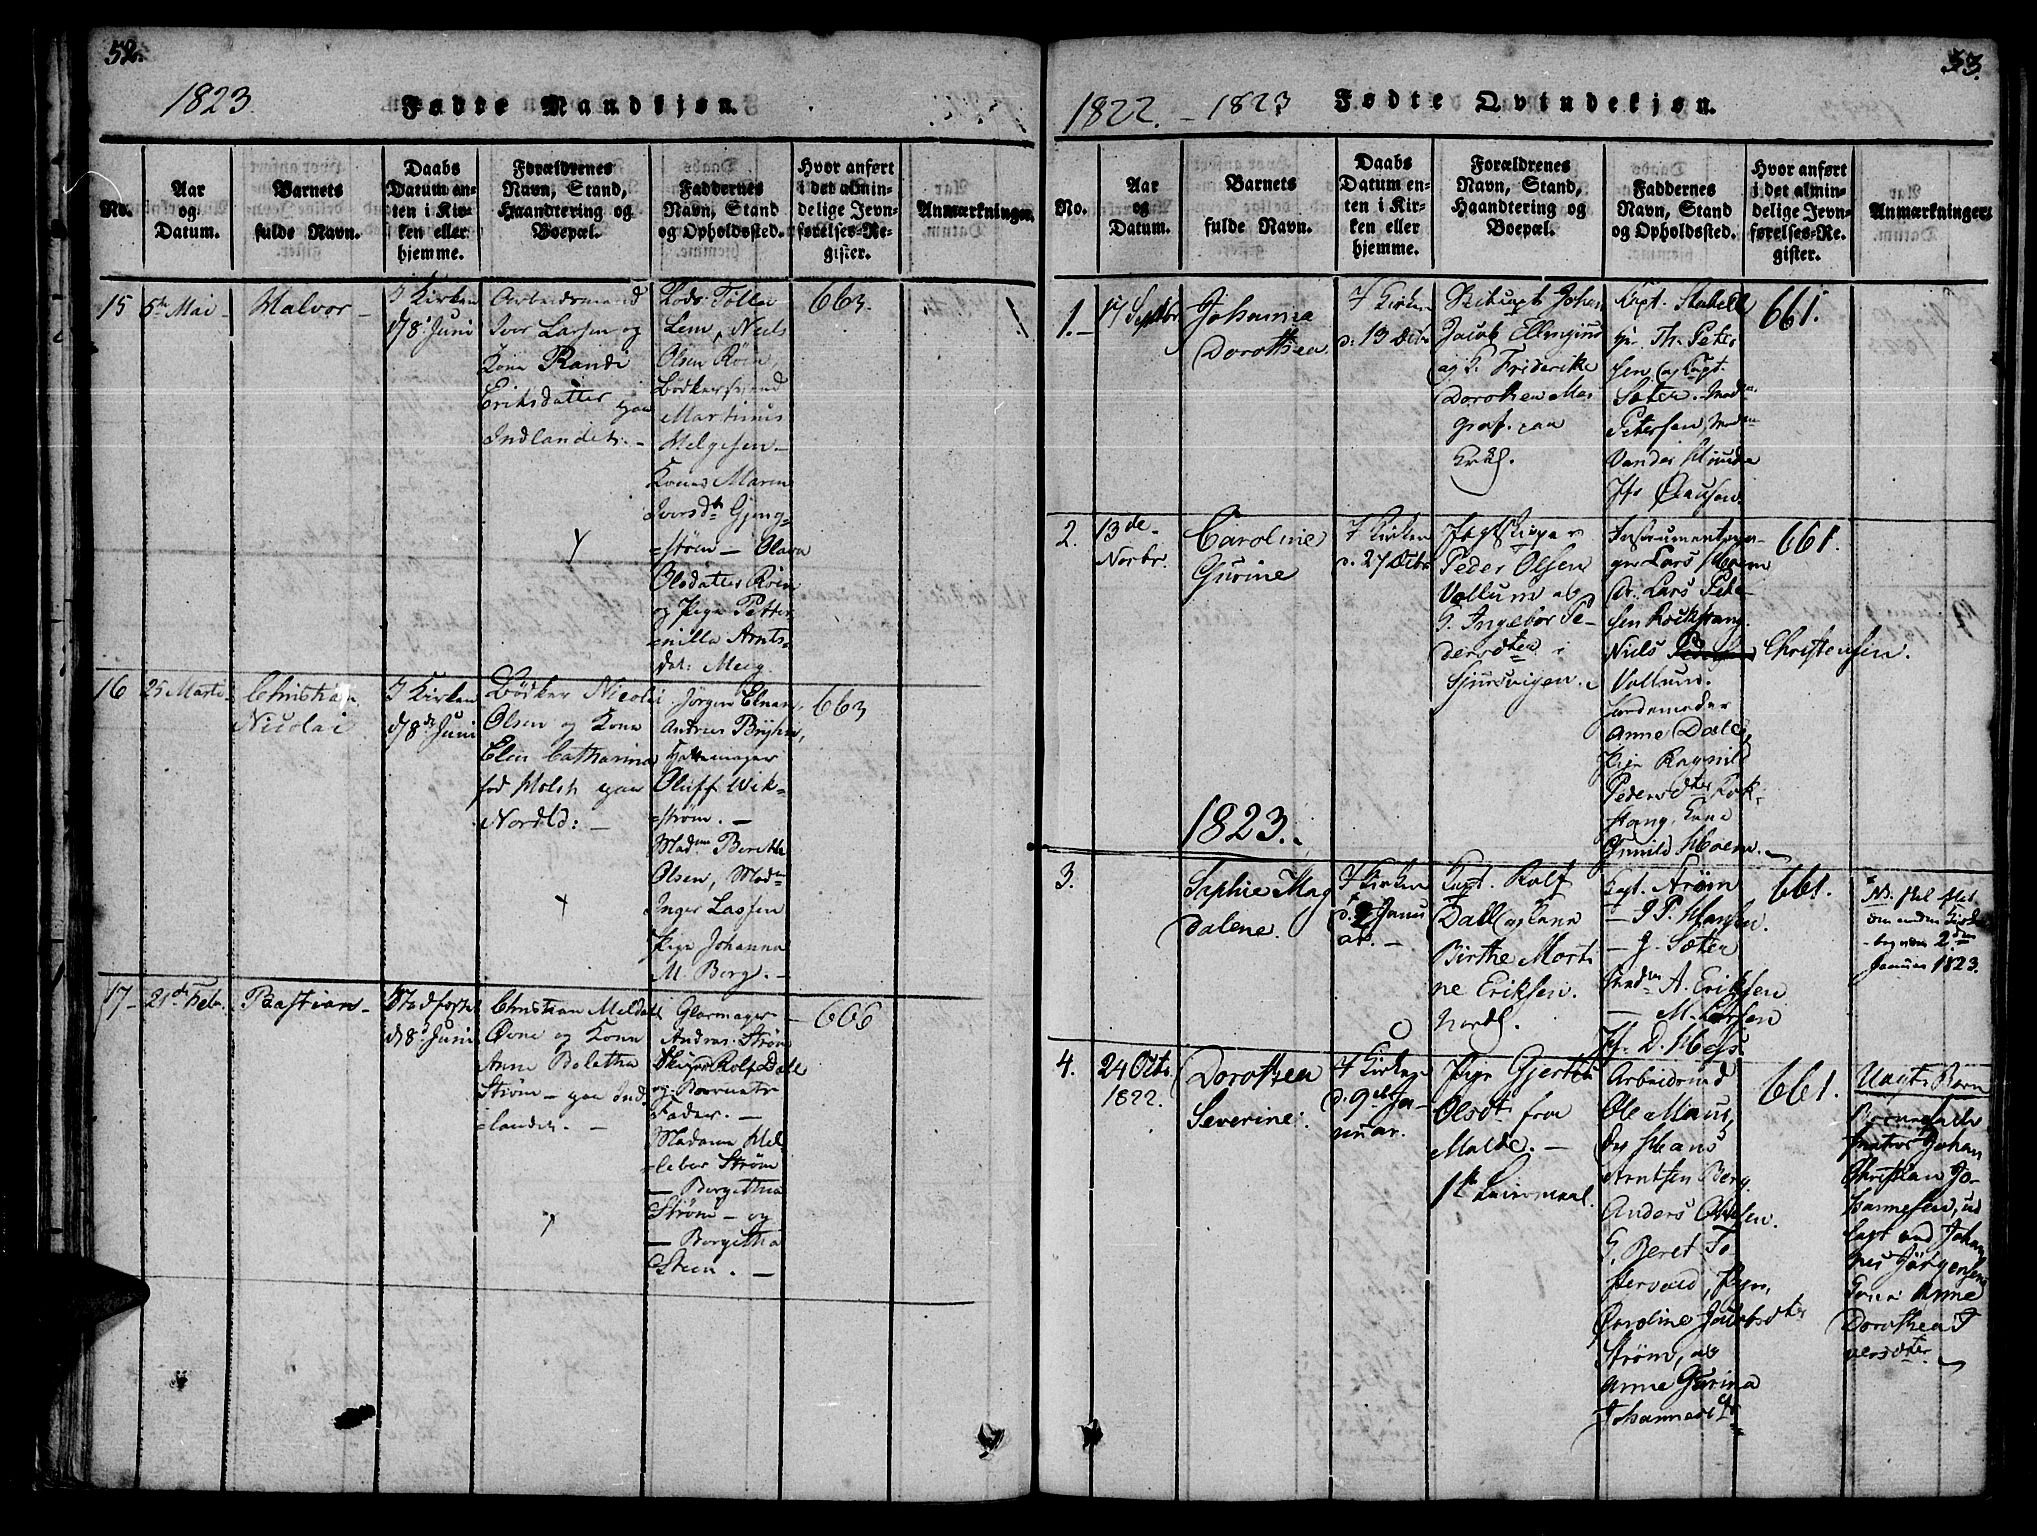 52.
1823.
Fødte Mandkjøn.
No.
Aar
og
Datum.
Barnets
fulde Navn.
Daabs
Datum en-
ten i Kir-
ken eller
hjemme.
Forældrenes
Navn, Stand,
Haandtering og
Boepæl.
Faddernes
Navn, Stand
og Opholdssted.
Hvor anført
i det almin-
delige Jevn-
førelses-Re-
gister.
Anmærkninger.
15
5te Mai
Halvor
I Kirken
d 8de Juni
Arbeidsmand
Iver Larsen og
Kone Randi
Eriksdatter paa
Indlandet.
Lods Tølle
Lem, Niels
Olsen Röen
Bödkersvend
Martinus
Helgesen
Kone Maren
Iversdtr Gjeng=
=strøm — Olava
Olsdatter Röen
og Pige Petter
=nille Arnts-
dat: Moeg
663.
16
25 Marti
Christian
Nicolai
I Kirken
d 8de Juni
Bödker Nicolai
Olsen og Kone
Elen Catharina
fød Holst paa
Nordld:
Jörgen Elnan,
Andreas Bryhn,
Hattemager
Oluff Wik-
=strøm. —
Madme Berethe
Olsen, Madme
Inger Lassen
Pige Johanna
M. Berg. —
663
17
21de Feb.
Bastian
d 8de Juni
Christian Meldal
Øvne og Kone
Anne Boletha
Strøm — paa Ind
=landet. —
Glarmager
Andreas Strøm
Skipper Rolf Dall
og Barnets
Fader. —
Madame Hel
=lebor Strøm
— Borgitha
Strøm — og
— Borgitha
Steen. —
666
53.
1822. — 1823
Fødte Qvindekjøn.
No.
Aar
og
Datum.
Barnets
fulde Navn.
Daabs
Datum en-
ten i Kir-
ken eller
hjemme.
Forældrenes
Navn, Stand,
Haandtering og
Boepæl.
Faddernes
Navn, Stand
og Opholdssted.
Hvor anført
i det almin-
delige Jevn-
førelses-Re-
gister.
Anmærkninger.
1.
17 Septbr
Johanna
Dorothea
I Kirken
d. 13 Decbr
Jacob Ellingsen
og K. Friderike
Dorothea
paa
Capt. Stabell
Hr. Th. Peter
sen og Capt.
Sæter. Madme
Petersen, Madme
Vander
Jfr Clausen.
661.
2.
13de
Novbr.
Caroline
Gurine
I Kirken
d. 27 Decbr
Jagtskipper
Peder Olsen
Vollum og
K. Ingebor Pe-
dersdtter i
Sjursvigen.
Instrumentma-
ger Lars Moen
Dr. Lars Peter-
sen Rokstang
Niels Christensen.
Vollum.
Jordemoder
Anne Dall,
Pige Ragnild
Pedersdtter Rok-
stang, Kone
Gunild Moen.
661.
1823.
3.
Sophie Mag
dalene.
I Kirken
d. 2 Janu
ar. —
Capt. Rolf
Dall og Kone
Birthe Marti
ne Eriksen.
Nordl.
Capt. Strøm
— I P. Hansen.
— G. Sæter
Madm A. Eriksen
— M. Larsen
Jf. D. Hess.
661.
2den
Januar 1823.
4.
24 Octbr.
1822.
Dorothea
Severine.
I Kirken
d. 9de Ja-
nuar.
Pige Gjertru
Olsdtr fra
Molde. —
1te Leiermaal.
Arbeidsmd
Ole Maus,
Ds Hans
Arntsen Berg.
Anders Olsen.
K. Beret To
stervold, Pigen,
Caroline Jacobsdtter
Strøm, og
Anne Gurina
Johannesdtr
661.
Uægte Barn
Christian Jo-
hannesen, ud
lagt ved Johan
nes Jörgensens
Kone Anne
Dorothea I
versdtter